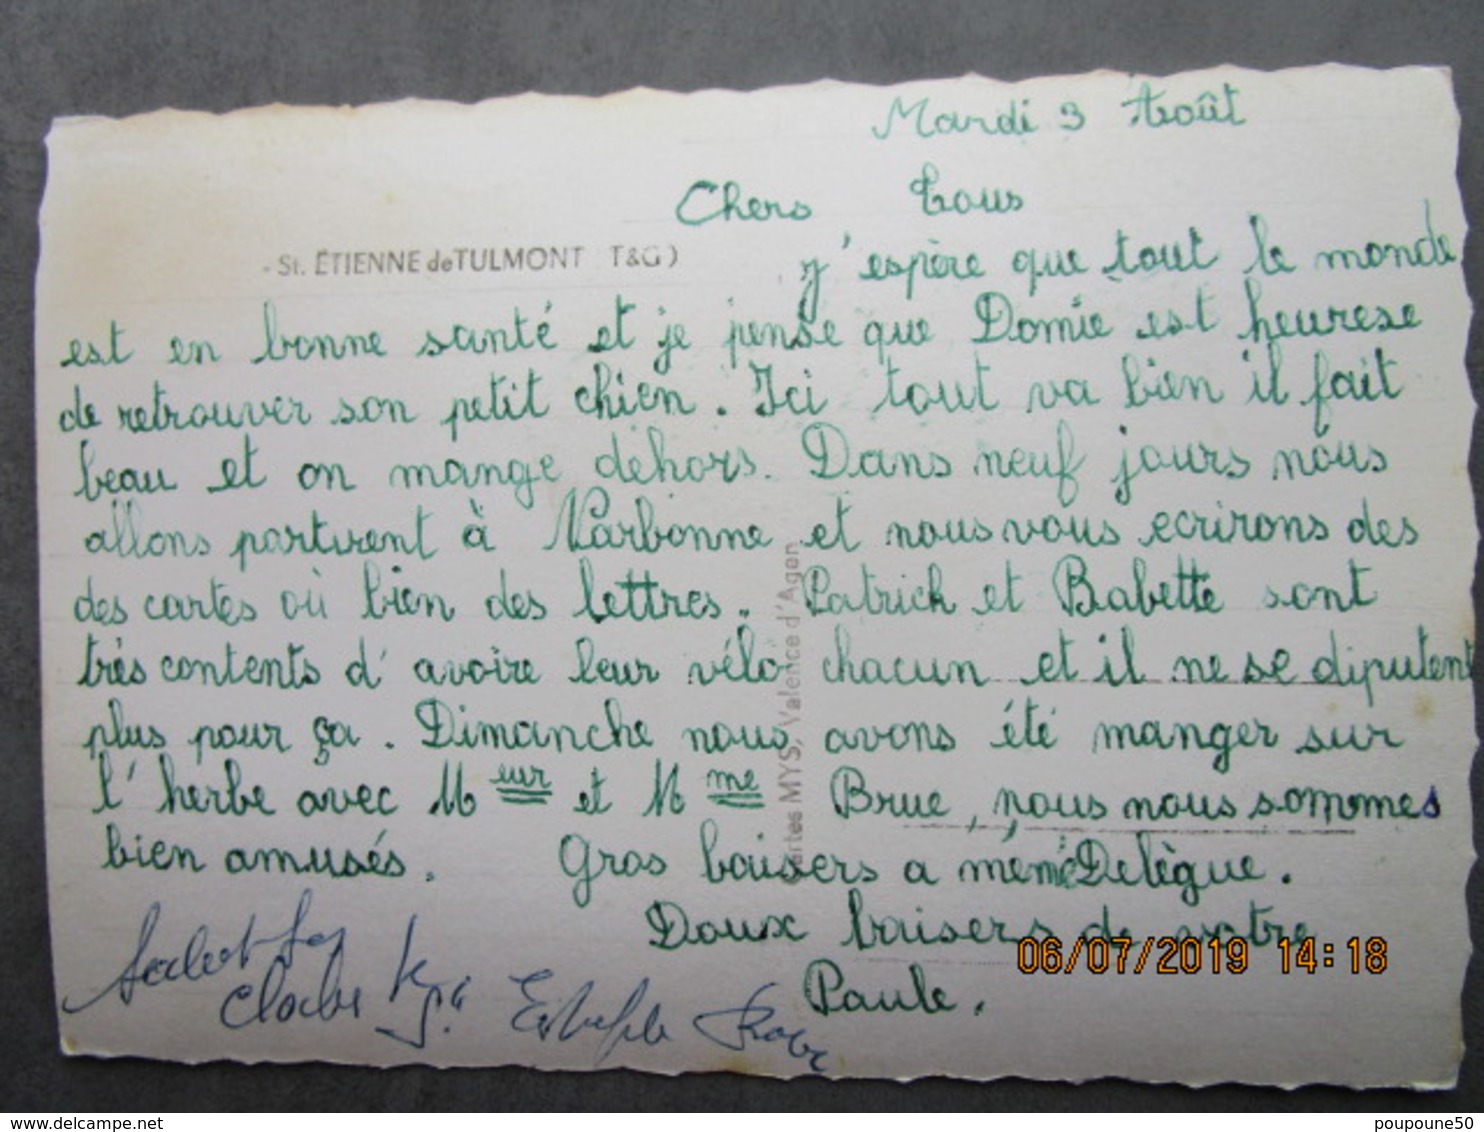 Mardi 3 Août
Chers Tous
- St. ÉTIENNE de TULMONT T&G)
y'espère que tout le monde
est en bonne santé et je pense que Domie est heurese
de retrouver son petit chien. Ici tout va bien il fait
beau et on mange dehors. Dans neuf jours nous
allons partirent à Narbonne et nous vous ecrirons des
des cartes où bien des lettres. Patrick et Babette sont
très contents d'avoire leur vélo chacun et il ne se diputent
plus pour ça. Dimanche nous avons été manger sur
l'herbe avec Meur et Mme Brue, nous nous sommes
bien amusés. Gros baisers a mémé Delègue.
Doux baisers de votre
Paule.
Cartes MYS, Valence d'Agen
06/07/2019 14:18
poupoune50